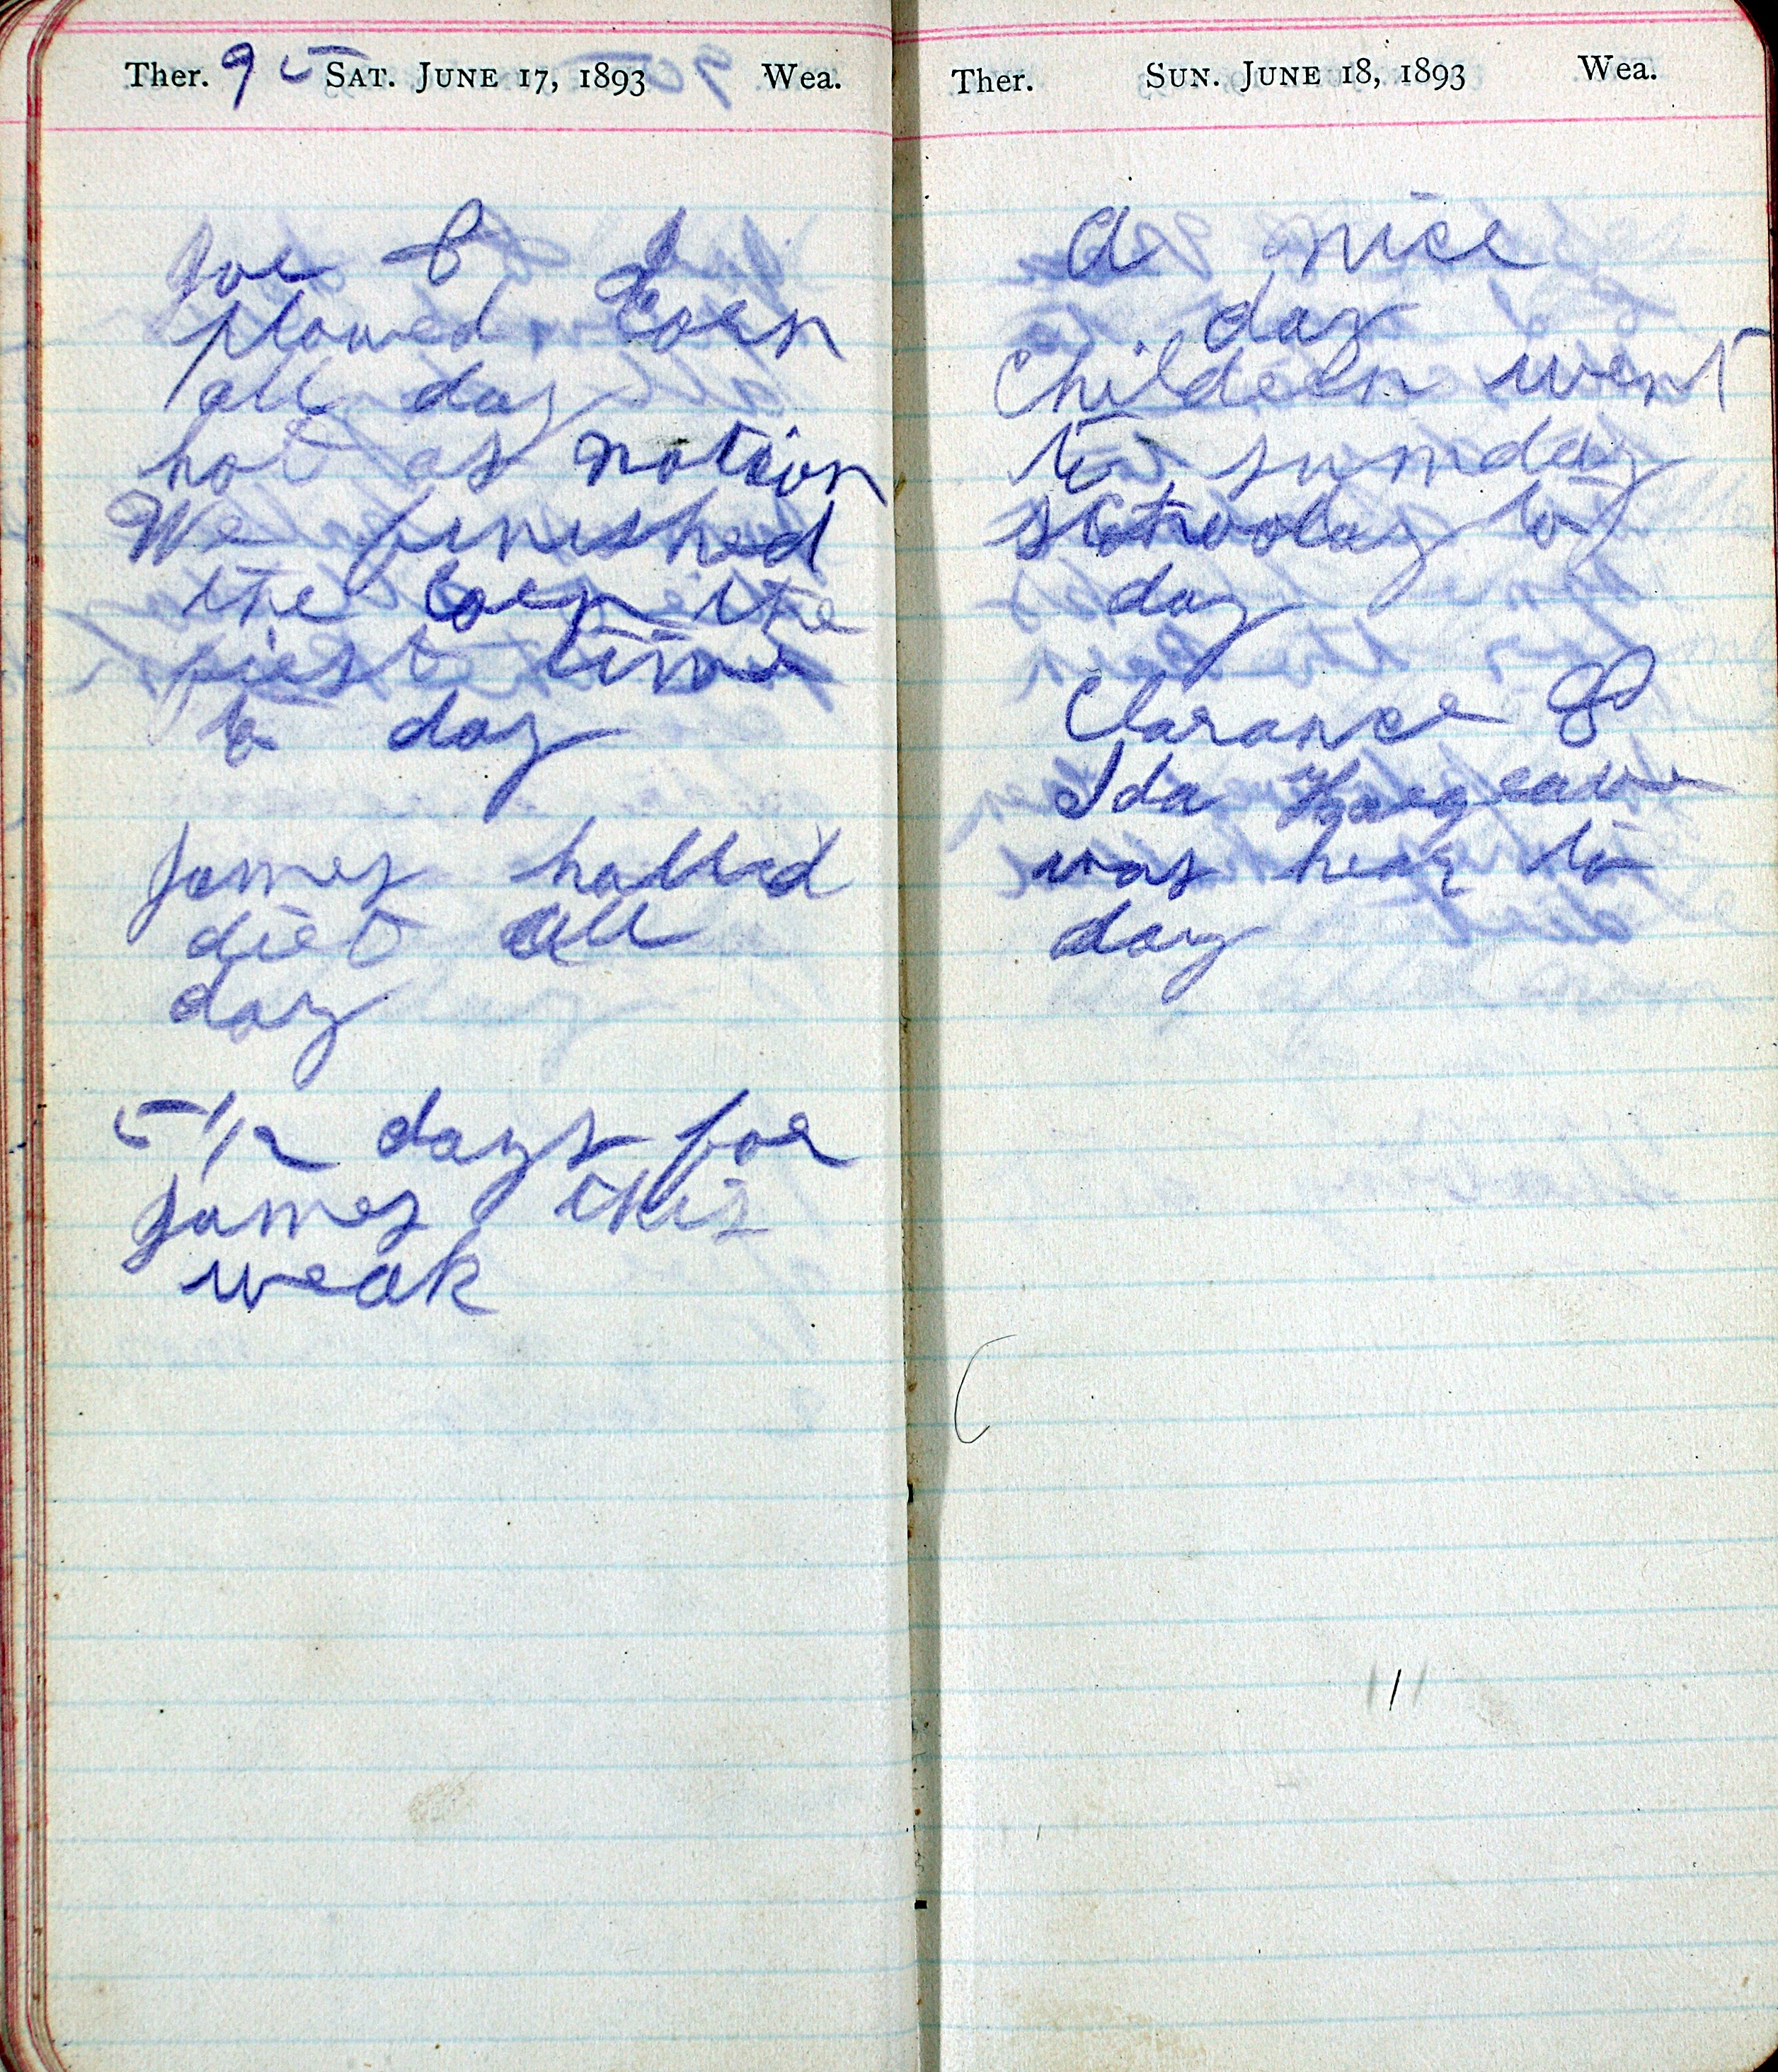 Ther. 95 SAT. JUNE 17, 1893 Wea.
Joe & I
plowed Corn
all day
hot as notion
We finished
the Corn the
first time
to day
James halled
dirt all
day
5 1/2 days for
James this
weak
Ther. SUN. JUNE 18, 1893 Wea.
A nice
day
Children went
to sunday
schoolay to
day
Clarance &
Ida Hargrave
was hear to
day